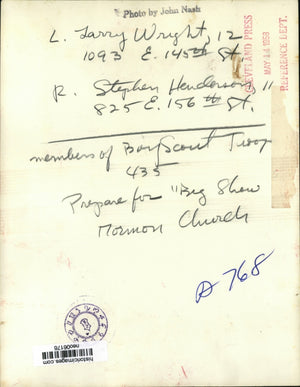 Photo by John Nash
L. Larry Wright, 12
1093 E. 145th St.
R. Stephen Henderson, 11
825 E. 156th St.
members of Boy Scout Troop
435
Prepare for "Big Show
Mormon Church
A 768
CLEVELAND PRESS
MAY 14 1958
REFERENCE DEPT.
historicimages.com
neo06176